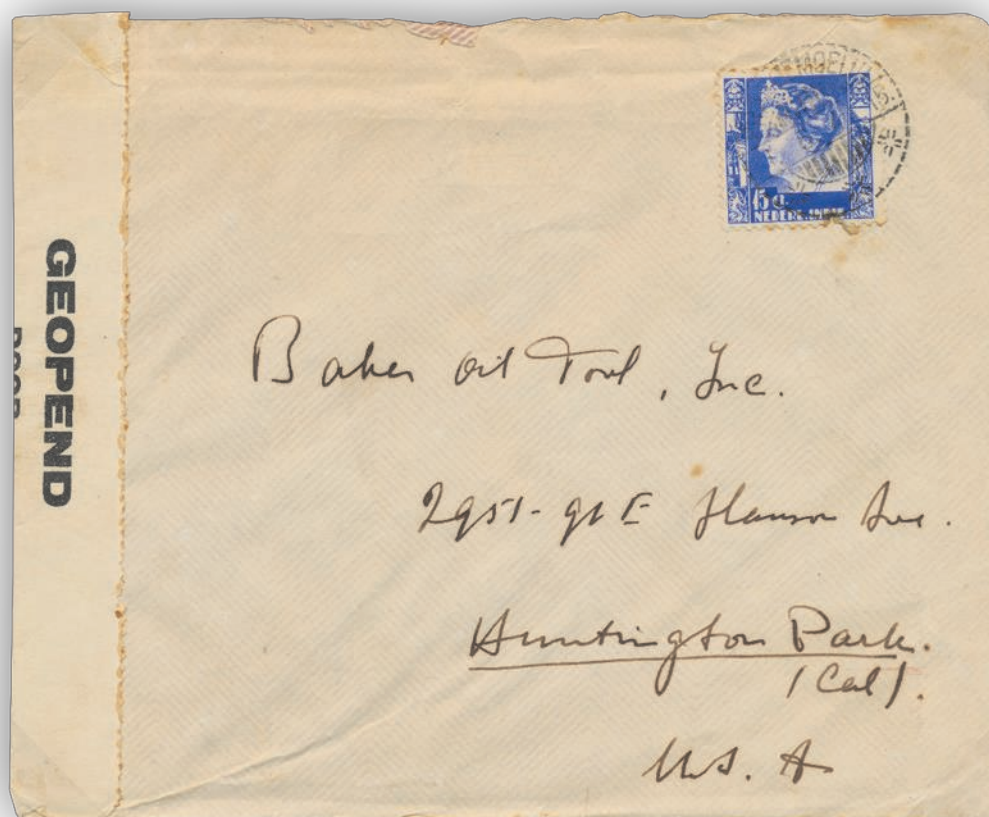 GEOPEND
DOOR
15 c.
NEDERL. INDIË
Baker Oil Tool, Inc.
2951-91 E Slauson Ave.
Huntington Park.
(Cal).
U.S. A